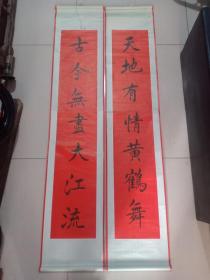 天地有情黄鶴舞
古今無盡大江流